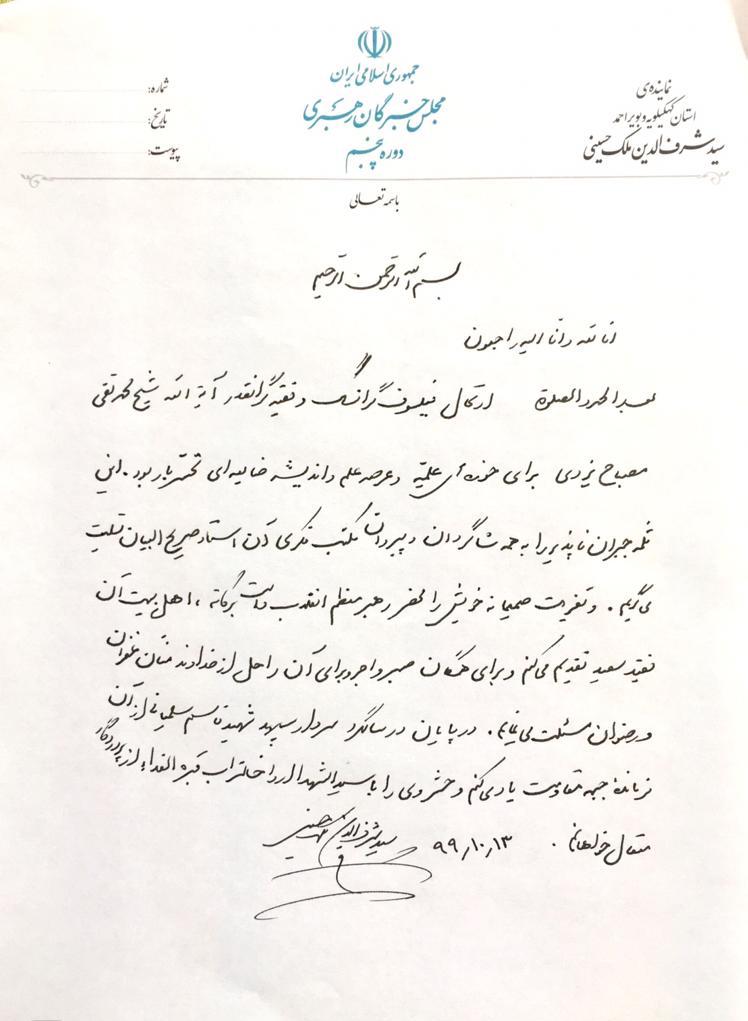 جمهوری اسلامی ایران
مجلس خبرگان رهبری
دوره پنجم
نماینده‌ی
استان کهگیلویه و بویراحمد
سید شرف الدین ملک حسینی
شماره:
تاریخ:
پیوست:
باسمه تعالی
بسم الله الرحمن الرحیم
انا لله و انا الیه راجعون
بعد الحمد و الصلوة ارتحال فیلسوف گرانسنگ و فقیه گرانقدر آیة الله شیخ محمد تقی
مصباح یزدی برای حوزه های علمیّه و عرصه علم و اندیشه ضایعه ای تحسّر بار بود. این
ثلمه جبران ناپذیر را به همه شاگردان و پیروان مکتب فکری آن استاد صریح البیان تسلیت
می گویم. و تعزیت صمیمانه خویش را محضر رهبر معظم انقلاب دامت برکاته، اهل بیت آن
فقید سعید تقدیم می کنم و برای همگان صبر و اجر و برای آن راحل از خداوند منّان غفران
و رضوان مسئلت می نمایم. در پایان در سالگرد سردار سپهبد شهید قاسم سلیمانی از آن
فرمانده جبهه مقاومت یاد می کنم و حشر وی را با سید الشهدا ارواحنا لتراب قبره الفداء از پروردگار
متعال خواهانم. ۹۹/۱۰/۱۳ سید شرف الدین ملک حسینی